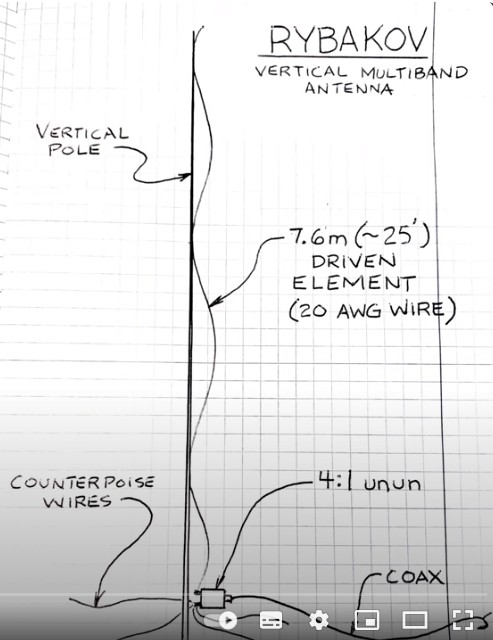 RYBAKOV
VERTICAL MULTIBAND
ANTENNA
VERTICAL
POLE
7.6m (~25')
DRIVEN
ELEMENT
(20 AWG WIRE)
COUNTERPOISE
WIRES
4:1 unun
COAX